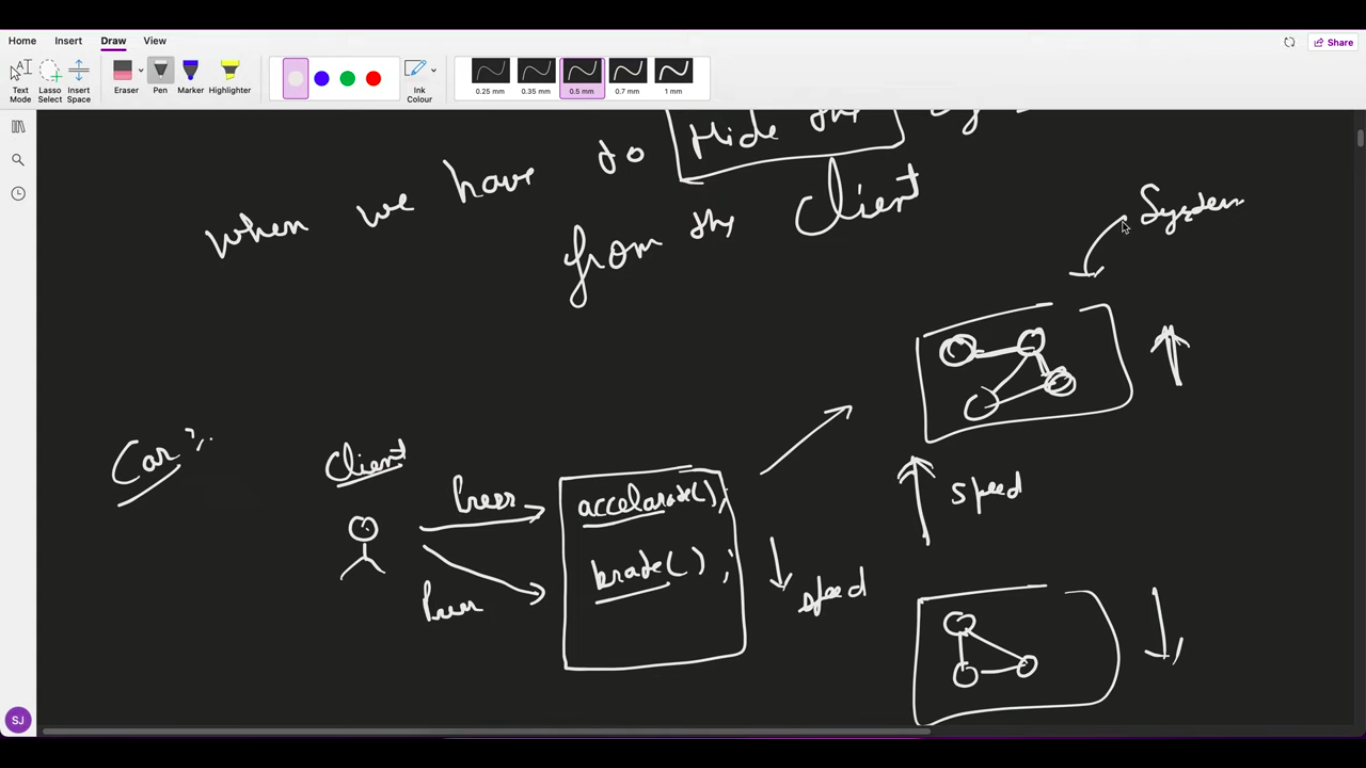 Home Insert Draw View
Share
Text Mode
Lasso Select
Insert Space
Eraser
Pen
Marker
Highlighter
0.25 mm
0.35 mm
0.5 mm
0.7 mm
1 mm
Ink Colour
when we have to Hide the
from the Client
System
Car :
Client
Press
accelarate();
speed
brake();
Press
speed
SJ